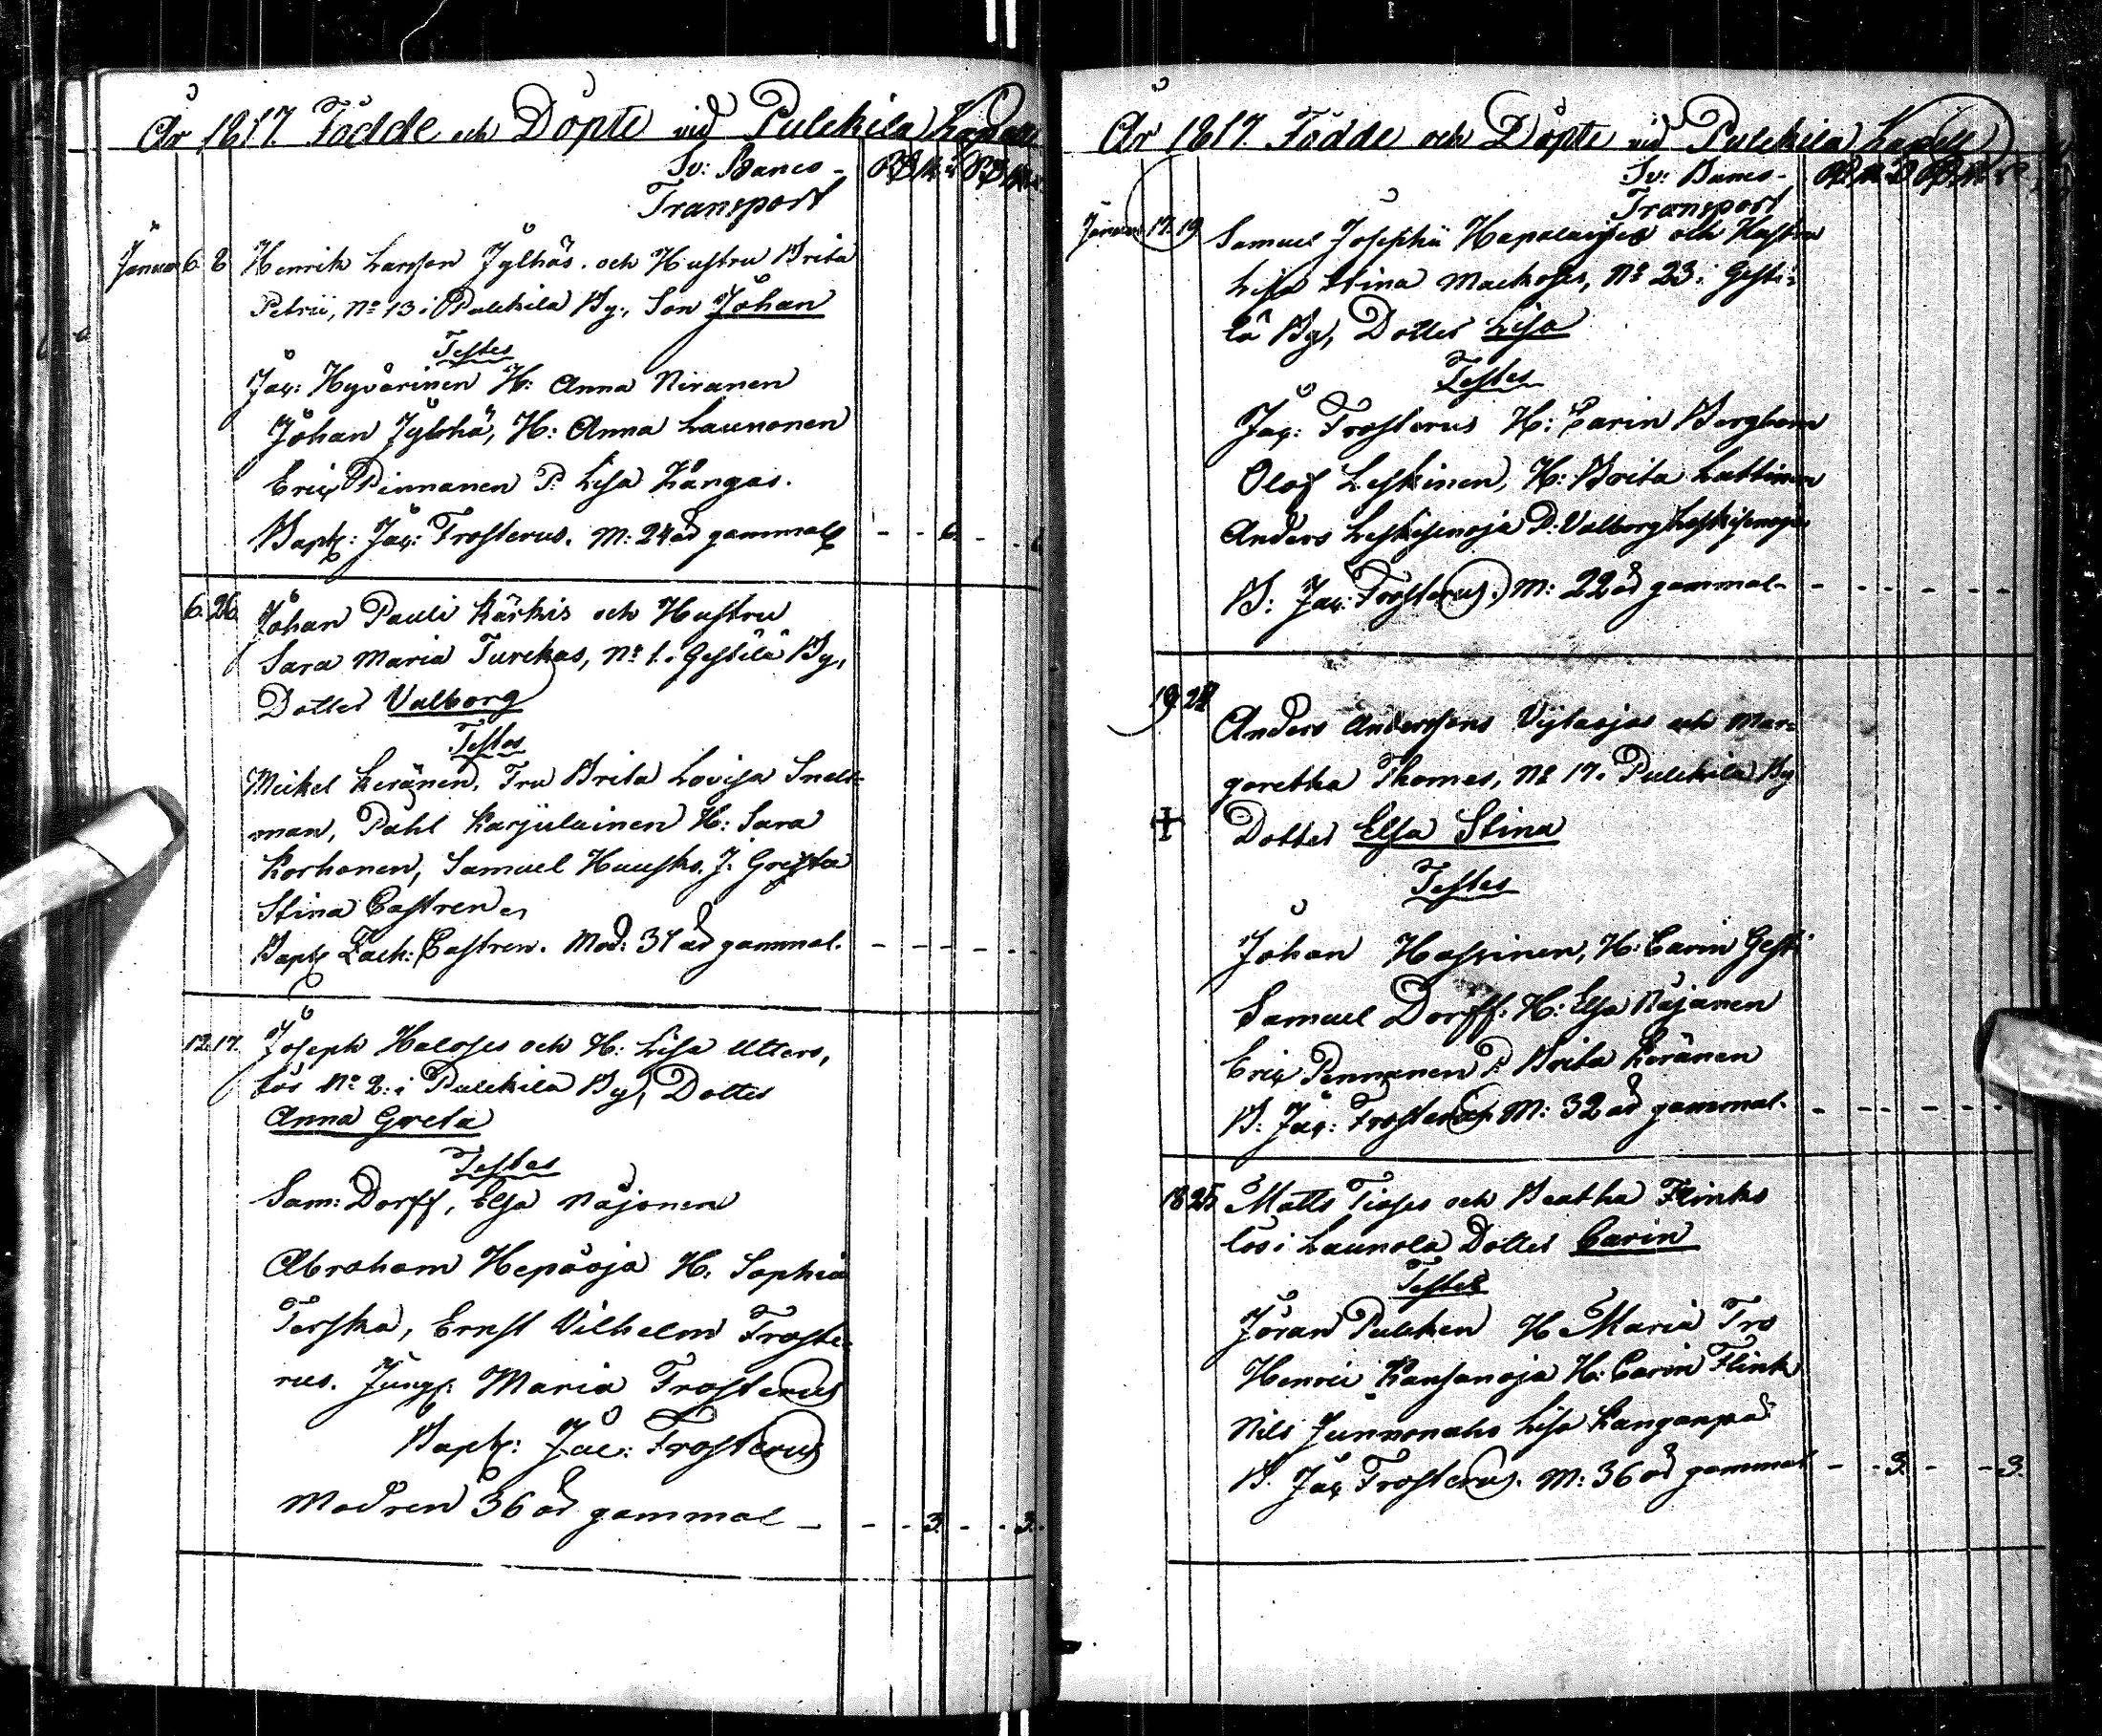 År 1817. Födde och Döpte vid Pulckila Kapell
Sv: Banco-
Transport
Januari 6. 8 Henrik Larsson Jylhäs. och Hustru Brita
Petrii, No 13 i Pulckila By, Son Johan
Testes
Jac: Hyvärinen H: Anna Niranen
Johan Jylhä, H: Anna Launonen
Eric Pinnanen P. Lisa Kangas.
Bapt: Jac: Frosterus. M: 24 år gammal - - 6. - - 6
6. 26. Johan Pauli Kärkis och Hustru
Sara Maria Turckas, No 1. Gestilä By,
Dotter Valborg
Testes
Mickel Keränen, Fru Brita Lovisa Snell-
man, Påhl Karjulainen H: Sara
Korhonen, Samuel Huusko. J. Greta
Stina Castren
Bapt Zach: Castren. Mod: 31 år gammal. - - - - -
12. 17. Joseph Haloses och H: Lisa Utters,
lös No 2: i Pulckila By, Dotter
Anna Greta
Testes
Sam: Dorff, Elsa Näjönen
Abraham Hepåoja H: Sophia
Terska, Ernst Vilhelm Froste-
rus. Jungf: Maria Frosterus
Bapt: Jac: Frosterus
Modren 36 år gammal - - - 3. - - 3.
År 1817. Födde och Döpte vid Pulckila Kapell
Sv: Banco-
Transport
Januari 17. 19 Samuel Josephii Hapalaises och Hustru
Lisa Stina Mackoses, No 23 i Gesti-
lä By, Dotter Lisa
Testes
Jac: Frosterus H: Carin Bergbom
Olof Leskinen, H: Brita Lattinen
Anders Leskisenoja P: Valborg Leskisenoja
B: Jac: Frosterus. M: 22 år gammal - - - - - -
19. Anders Anderssons Vijtaojas och Mar-
garetha Thomas, No 17. Pulckila By
Dotter Elsa Stina
Testes
Johan Hassinen, H: Carin Gesti
Samuel Dorff. H: Elsa Näjänen
Eric Pennanen P. Brita Keränen
B: Jac: Frosterus M: 32 år gammal. - - - - - -
18 25 Matts Tioses och Beatha Flinks
lös i Launola Dotter Carin
Testes
Jöran Pulcken H Maria Tro
Henric Kansanoja H: Carin Flink
Nils Junnonaho Lisa Kanganpä
B. Jac Frosterus. M: 36 år gammal - - 3. - - 3.